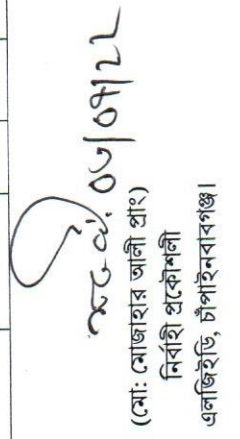 ০৬/০৭/২২
(মো: মোজাহার আলী প্রাং)
নির্বাহী প্রকৌশলী
এলজিইডি, চাঁপাইনবাবগঞ্জ।